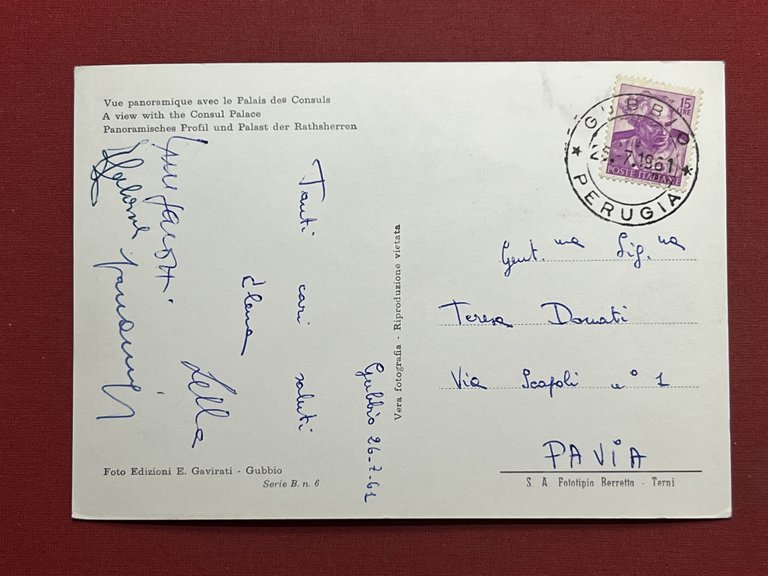 Vue panoramique avec le Palais des Consuls
A view with the Consul Palace
Panoramisches Profil und Palast der Rathsherren
Tanti cari saluti
Elena
Lella
Gubbio 26-7-61
Foto Edizioni E. Gavirati - Gubbio
Serie B. n. 6
Vera fotografia - Riproduzione vietata
15
LIRE
GUBBIO
7.1961
POSTE ITALIANE
PERUGIA
Gent.ma Sig.na
Teresa Donati
Via Scopoli n° 1
PAVIA
S. A. Fototipia Berretta - Terni